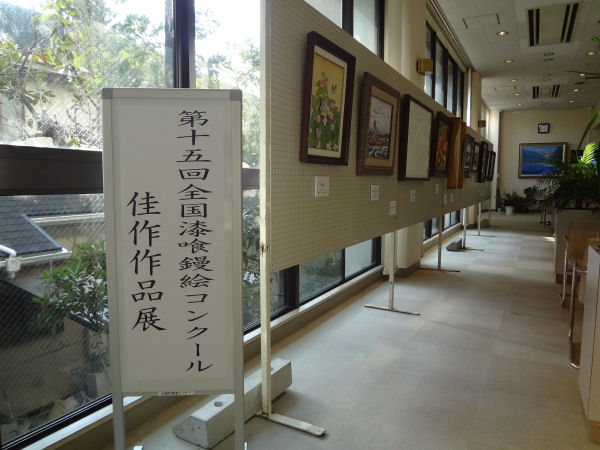 第十五回全国漆喰鏝絵コンクール
佳作作品展